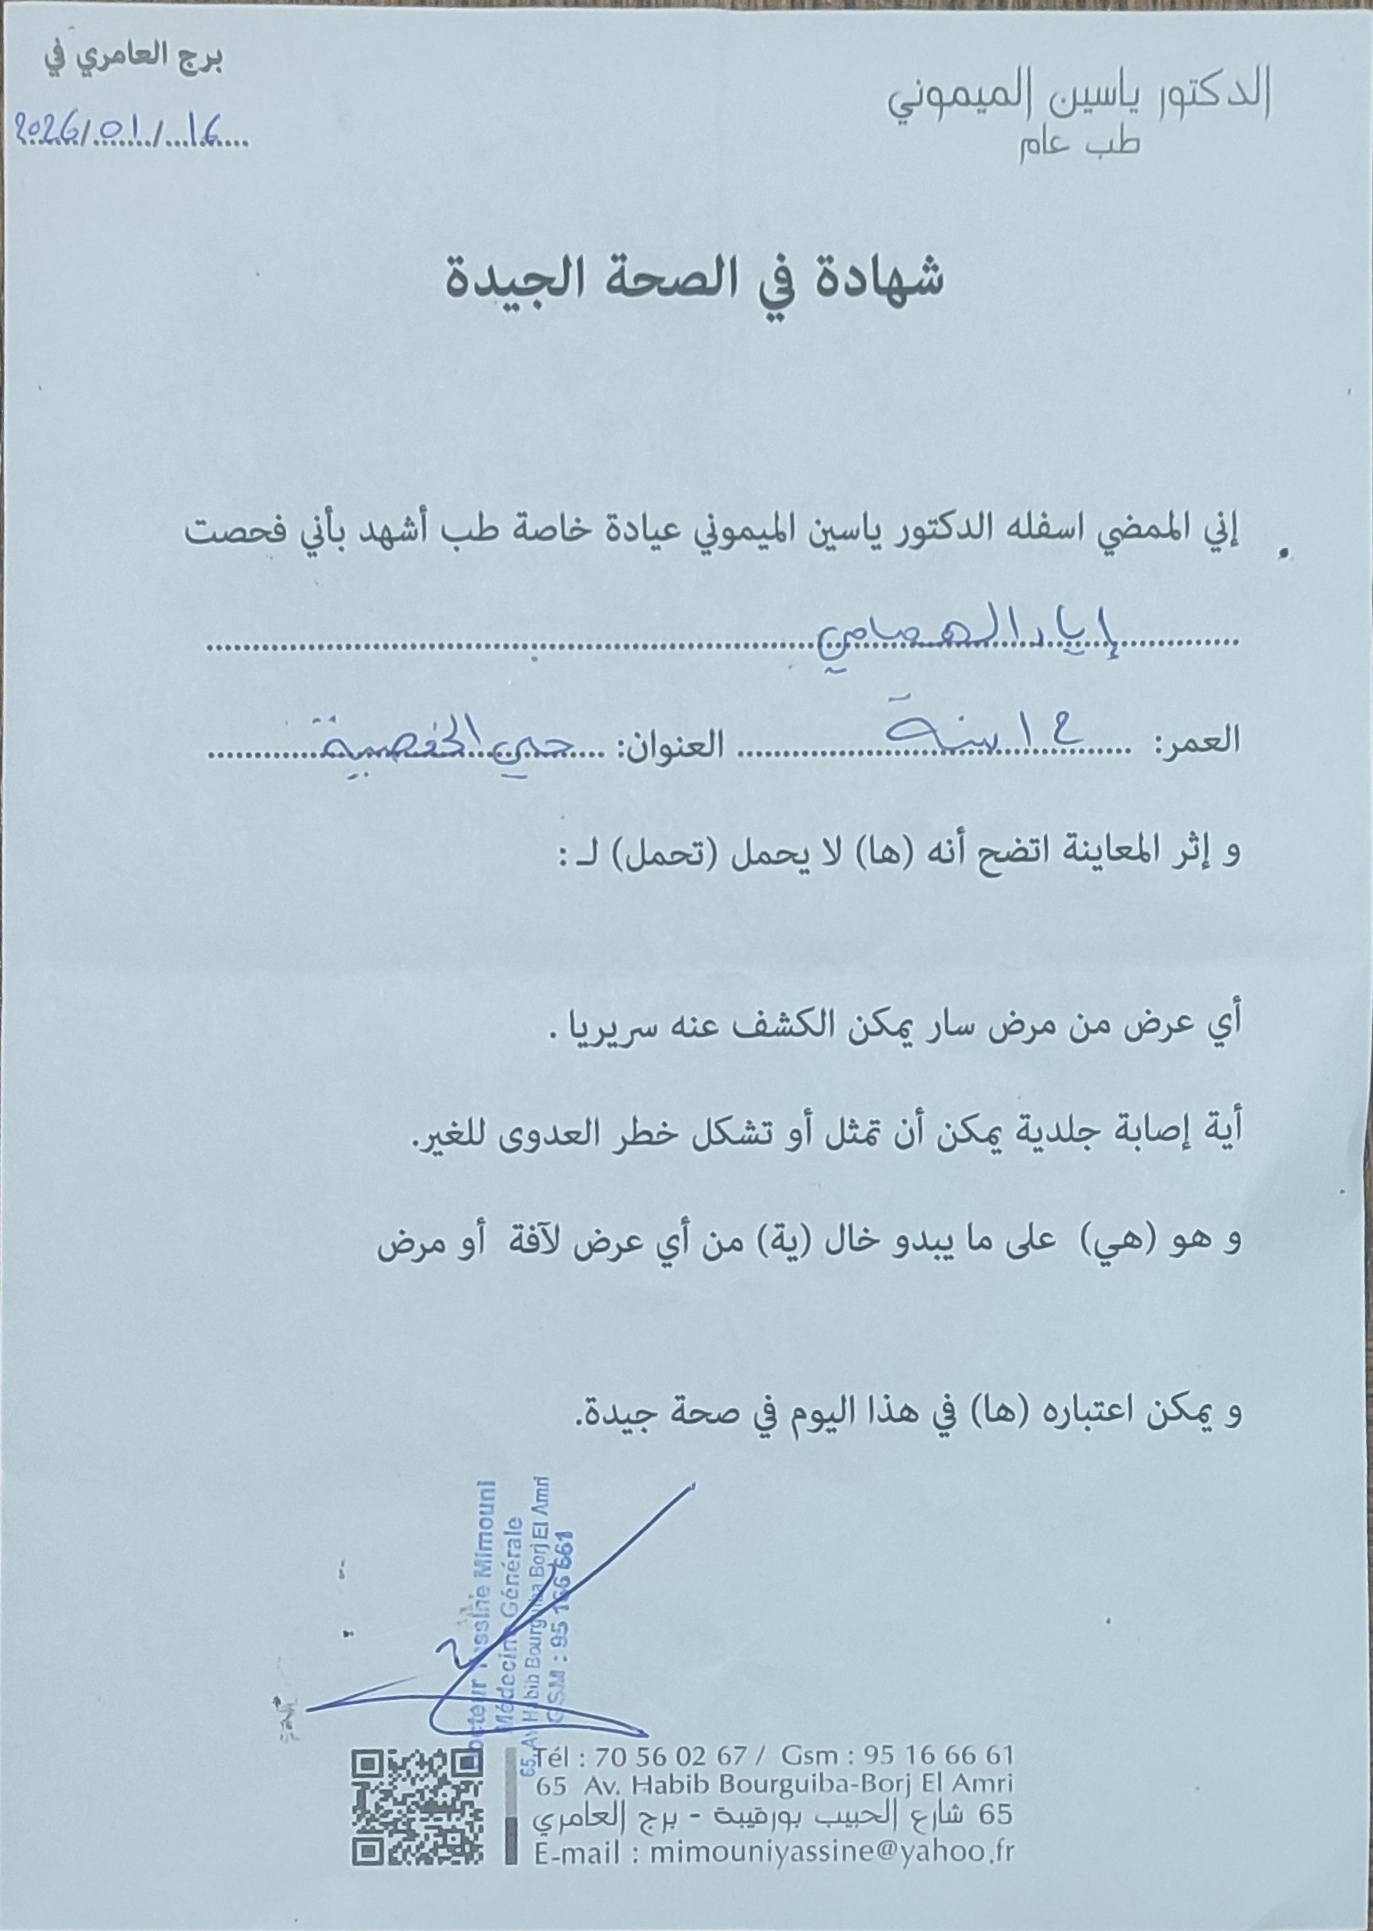 الدكتور ياسين الميموني
طب عام
برج العامري في
2026/01/16
شهادة في الصحة الجيدة
إني الممضي اسفله الدكتور ياسين الميموني عيادة خاصة طب أشهد بأني فحصت
إياد الهمامي
العمر: 12 سنة العنوان: حي
و إثر المعاينة اتضح أنه (ها) لا يحمل (تحمل) لـ :
أي عرض من مرض سار يمكن الكشف عنه سريريا .
أية إصابة جلدية يمكن أن تمثل أو تشكل خطر العدوى للغير.
و هو (هي) على ما يبدو خال (ية) من أي عرض لآفة أو مرض
و يمكن اعتباره (ها) في هذا اليوم في صحة جيدة.
Docteur Yassine Mimouni
Médecine Générale
65, Av Habib Bourguiba Borj El Amri
GSM : 95 166 661
Tél : 70 56 02 67 / Gsm : 95 16 66 61
65 Av. Habib Bourguiba-Borj El Amri
65 شارع الحبيب بورقيبة - برج العامري
E-mail : mimouniyassine@yahoo.fr